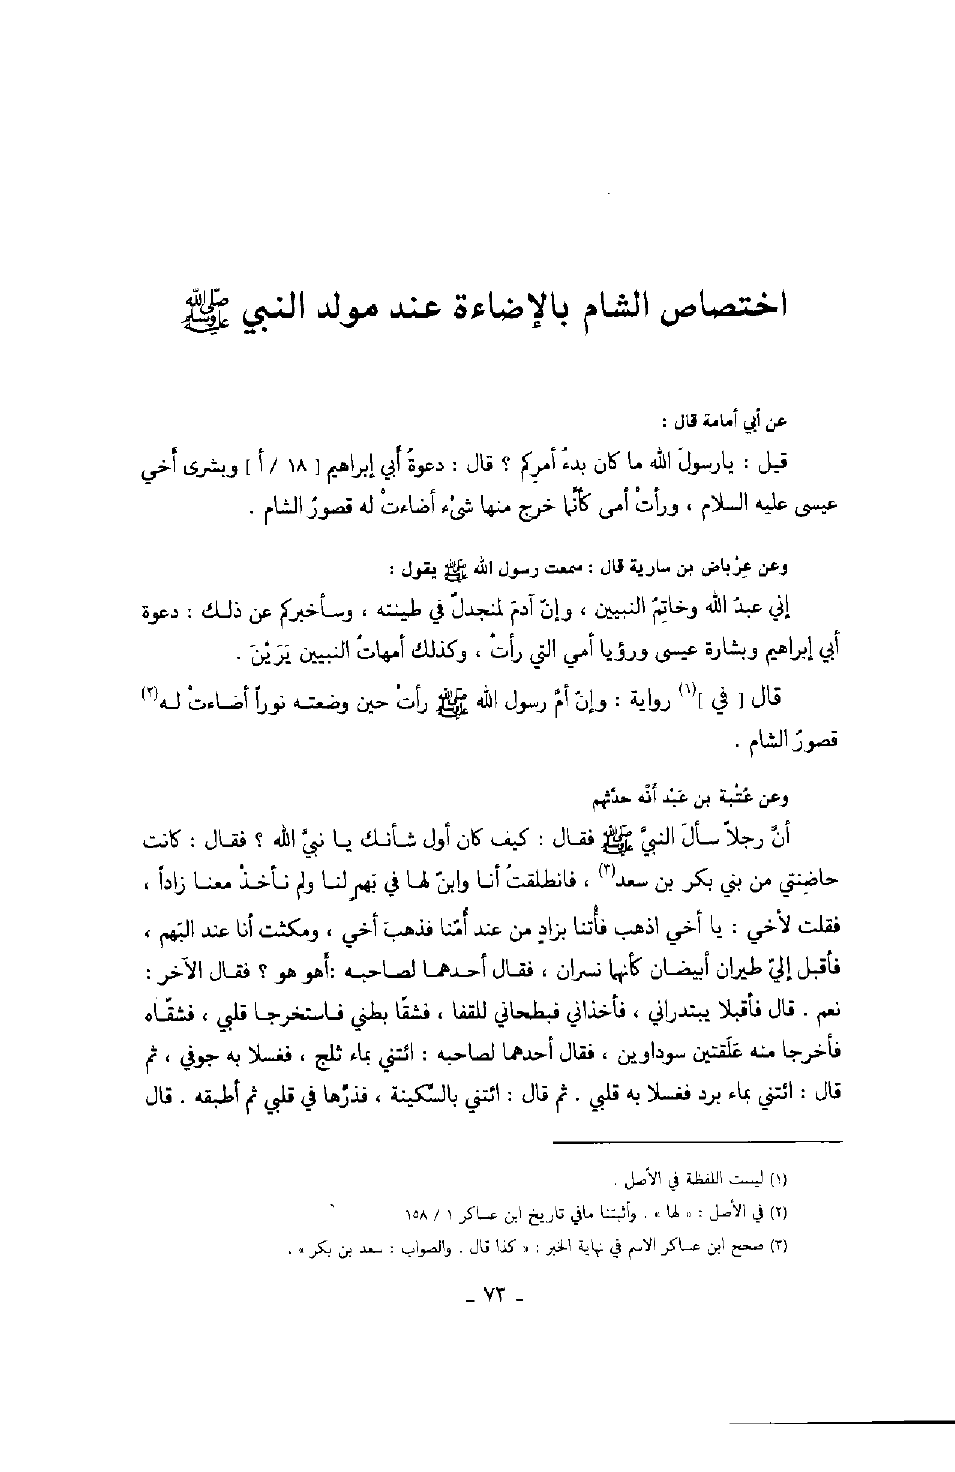 اختصاص الشام بالإضاءة عند مولد النبي ﷺ
عن أبي أمامة قال :
قيل : يارسولَ الله ما كان بدءُ أمركم ؟ قال : دعوةُ أبي إبراهيم [ ١٨ / أ ] وبشرى أخي
عيسى عليه السلام ، ورأتْ أمي كأنّما خرج منها شيْء أضاءتْ له قصورُ الشام .
وعن عِرْباض بن سارية قال : سمعت رسول الله ﷺ يقول :
إني عبدُ الله وخاتِمُ النبيين ، وإنّ آدمَ لمنجدلٌ في طينته ، وسأخبركم عن ذلك : دعوة
أبي إبراهيم وبشارة عيسى ورؤيا أمي التي رأتْ ، وكذلك أمهاتُ النبيين يَرَيْنَ .
قال [ في ](١) رواية : وإنّ أمَّ رسول الله ﷺ رأتْ حين وضعته نوراً أضاءتْ له(٢)
قصورُ الشام .
وعن عُتْبة بن عَبْد أنّه حدّثهم
أنَّ رجلاً سألَ النبيَّ ﷺ فقال : كيف كان أول شأنك يا نبيَّ الله ؟ فقال : كانت
حاضِنتي من بني بكر بن سعد(٣) ، فانطلقتُ أنا وابنٌ لها في بَهمٍ لنا ولم نأخذْ معنا زاداً ،
فقلت لأخي : يا أخي اذهب فأْتنا بزادٍ من عند أُمّنا فذهبَ أخي ، ومكثت أنا عند البَهم ،
فأقبل إليّ طيران أبيضان كأنها نسران ، فقال أحدهما لصاحبه :أهو هو ؟ فقال الآخر :
نعم . قال فأقبلا يبتدراني ، فأخذاني فبطحاني للقفا ، فشقّا بطني فاستخرجا قلبي ، فشقّاه
فأخرجا منه عَلَقتين سوداوين ، فقال أحدهما لصاحبه : ائتني بماء ثلج ، فغسلا به جوفي ، ثم
قال : ائتني بماء برد فغسلا به قلبي . ثم قال : ائتني بالسّكينة ، فذرّها في قلبي ثم أطبقه . قال
(١) ليست اللفظة في الأصل .
(٢) في الأصل : « لها » . وأثبتنا مافي تاريخ ابن عساكر ١ / ١٥٨
(٣) صحح ابن عساكر الاسم في نهاية الخبر : « كذا قال . والصواب : سعد بن بكر » .
- ٧٣ -